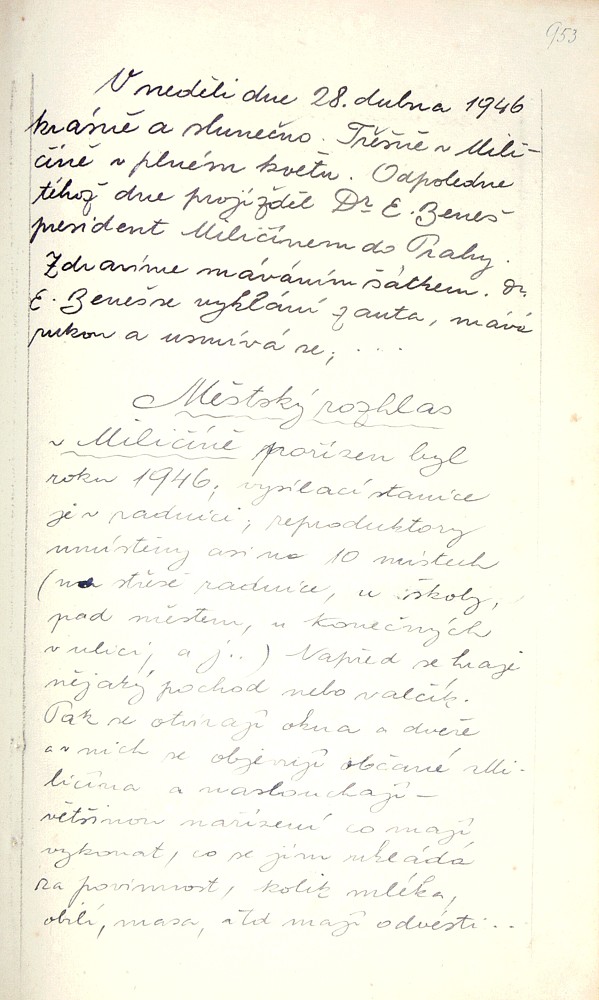 953
V neděli dne 28. dubna 1946
krásně a slunečno. Třešně v Mili-
číně v plném květu. Odpoledne
téhož dne projížděl Dr E. Beneš
president Miličínem do Prahy.
Zdravíme máváním šátkem. Dr.
E. Beneš se vyklání z auta, mává
rukou a usmívá se; ...
Městský rozhlas
v Miličíně pořízen byl
roku 1946; vysílací stanice
je v radnici; reproduktory
umístěny asi na 10 místech
(na střeše radnice, u školy,
pod městem, u Konečných
v ulici, a j..) Napřed se hraje
nějaký pochod nebo valčík.
Pak se otvírají okna a dveře
a v nich se objevují občané Mi-
ličína a naslouchají -
většinou nařízení co mají
vykonat, co se jim ukládá
za povinnost, kolik mléka,
obilí, masa, atd mají odvésti ..